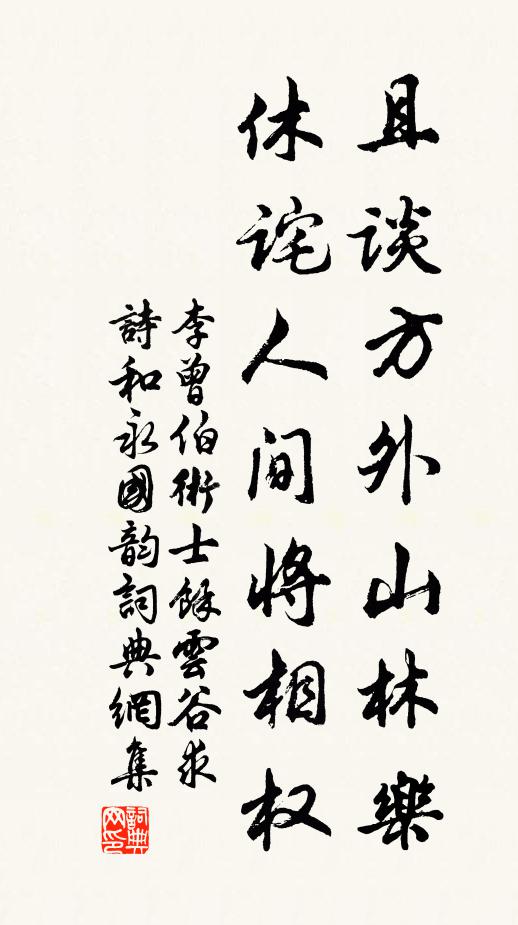 且谈方外山林樂
休詫人间将相权
李曾伯術士餘雲谷求
詩和永國韵詞典網集
詞典网印